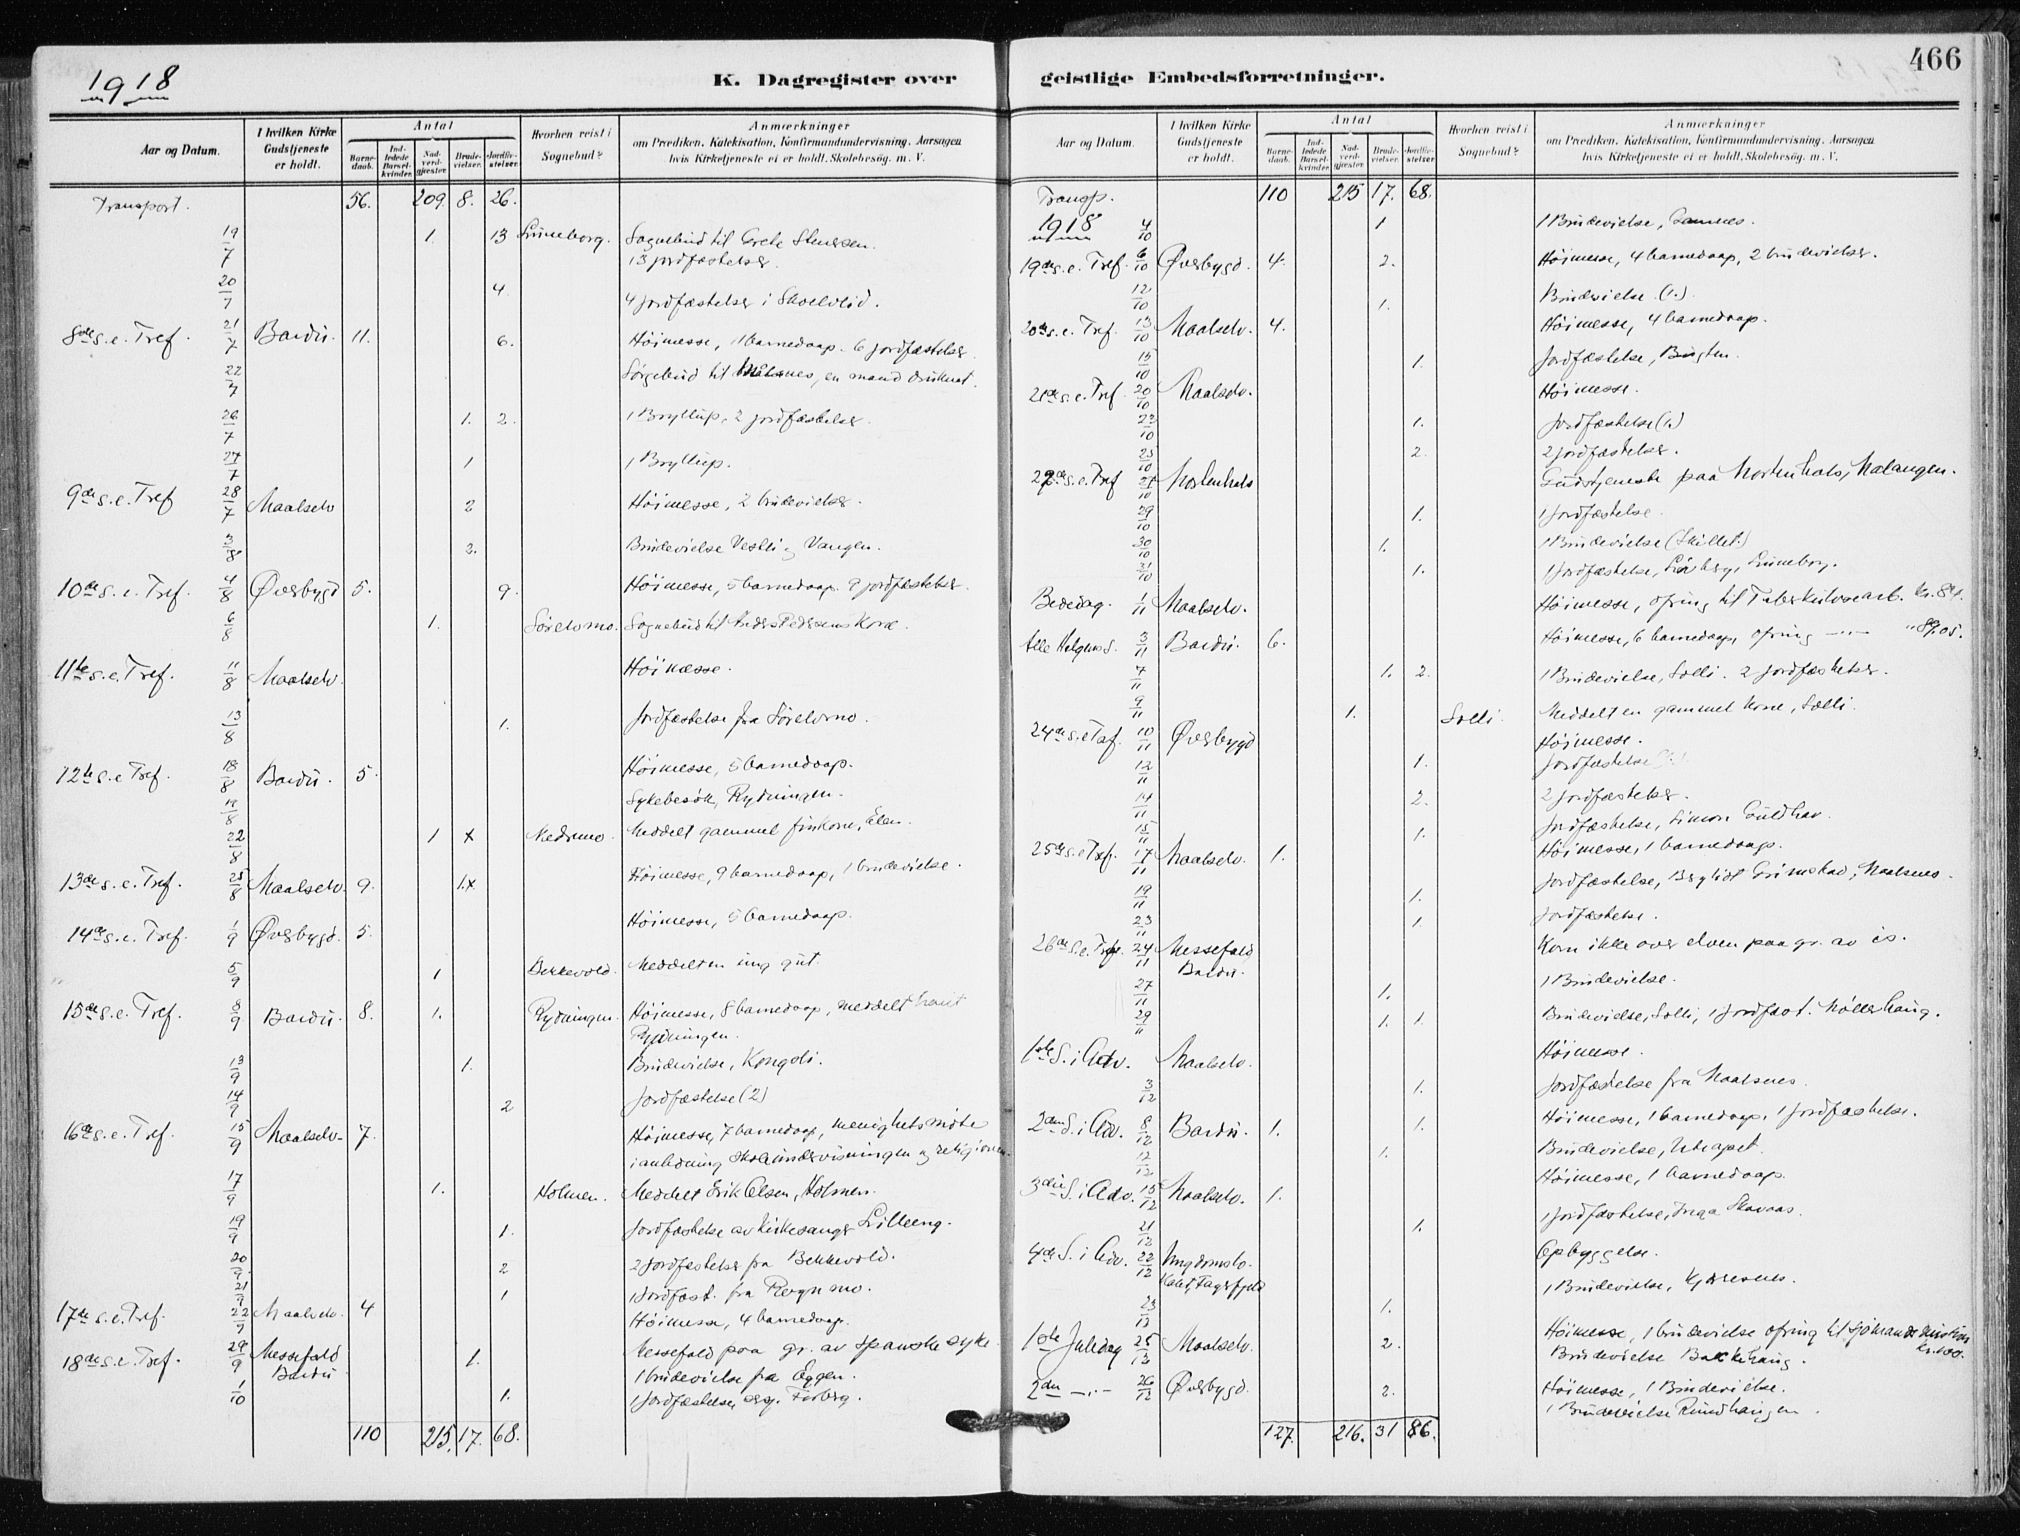 1918
K. Dagregister over
Aar og Datum.
I hvilken Kirke Gudstjeneste er holdt.
Antal
Barnedaab.
Indledede Barselkvinder.
Nadverdgjæster.
Brudevielser.
Jordfæstelser.
Hvorhen reist i Sognebud?
Anmærkninger
om Prædiken, Katekisation, Konfirmandundervisning, Aarsagen
hvis Kirketjeneste ei er holdt, Skolebesøg. m. V.
Transport. 56. 209. 8. 26.
19/7 1. 13 Luneborg. Sognebud til Grete Stenersen.
13 jordfæstelser.
20/7 4. 4 jordfæstelser i
8de s. e. Tref. 21/7 Bardu. 11. 6. Høimesse, 11 barnedaap. 6 jordfæstelser
22/7 Sørgebud til Maalsnes, en mand druknet.
26/7 1. 2. 1 Bryllup, 2 jordfæstelser.
27/7 1 1 Bryllup.
9de s. e. Tref 28/7 Maalselv 2 Høimesse, 2 brudevielser.
3/8 2. Brudevielse Vestli og Vangen.
10de s. e. Tref. 4/8 Øverbygd 5. 9. Høimesse, 5 barnedaap. 9 jordfæstelser
6/8 1. Sørelvmo. Sognebud til Anders Pedersens Kone.
11te s. e. Tref. 11/8 Maalselv. Høimesse.
13/8 1. Jordfæstelse fra Sørelvmo.
12te s. e. Tref. 18/8 Bardu. 5. Høimesse, 5 barnedaap.
19/8 Sykebesøk, Rydningen.
22/8 1 x Nedremo. Meddelt gammel finkone, Elen.
13de s. e. Tref. 25/8 Maalselv. 9. 1.x Høimesse, 9 barnedaap, 1 brudevielse.
14de s. e. Tref. 1/9 Øverbygd. 5. Høimesse, 5 barnedaap.
5/9 1 Bekkevold. Meddelt en ung gut.
15de s. e. Tref. 8/9 Bardu. 8. 1. Rydningen. Høimesse, 8 barnedaap, meddelt
Rydningen.
13/9 1. Brudevielse, Kongsli.
14/9 2 Jordfæstelse (2)
16de s. e. Tref. 15/9 Maalselv. 7. Høimesse, 7 barnedaap, menighetsmøte
i anledning skoleundervisningen og religionen.
17/9 1. Holmen. Meddelt Erik Olsen, Holmen.
19/9 1. Jordfæstelse av kirkesanger Lilleeng.
20/9 2 2 Jordfæstelser fra Bekkevold.
21/9 1 1 Jordfæst. fra Rognmo.
17de s. e. Tref. 22/9 Maalselv. 4 Høimesse, 4 barnedaap.
18de s. e. Tref. 29/9 Messefald Bardu 1. Messefald paa gr. av spanske syke.
1 brudevielse fra Eggen.
1/10 1. 1 Jordfæstelse, Forberg.
110 215. 17. 68.
466
geistlige Embedsforretninger.
Aar og Datum.
I hvilken Kirke Gudstjeneste er holdt.
Antal
Barnedaab.
Indledede Barselkvinder.
Nadverdgjæster.
Brudevielser.
Jordfæstelser
Hvorhen reist i Sognebud?
Anmærkninger
om Prædiken, Katekisation, Konfirmandundervisning, Aarsagen
hvis Kirketjeneste ei er holdt, Skolebesög. m. V.
Transp. 110 215 17. 68.
1918 4/10 1 1 Brudevielse,
19de s. e. Tref. 6/10 Øverbygd. 4. 2. Høimesse, 4 barnedaap, 2 brudevielser.
12/10 1. Brudevielse (1.)
20de s. e. Tref. 13/10 Maalselv. 4. Høimesse, 4 barnedaap.
15/10 1. Jordfæstelse, Bugten.
21de s. e. Tref. 20/10 Maalselv. Høimesse.
22/10 1. Jordfæstelse (1.)
25/10 2. 2 jordfæstelser.
22de s. e. Tref 27/10 Mortenhals Gudstjeneste paa Mortenhals, Malangen.
29/10 1. 1 Jordfæstelse.
30/10 1. 1 Brudevielse
31/10 1. 1 Jordfæstelse, Luneborg.
Bededag. 1/11 Maalselv. Høimesse, ofring til Tuberkulosearb. Kr. 84.
Alle Helgens. 3/11 Bardu. 6. Høimesse, 6 barnedaap, ofring —"— " 89.05.
7/11 1. 2. 1 Brudevielse, Solli. 2 jordfæstelser.
9/11 1. Solli. Meddelt en gammel kone, Solli.
24de s. e. Tref. 10/11 Øverbygd Høimesse.
12/11 1. Jordfæstelse
14/11 2. 2 Jordfæstelser.
15/11 1. Jordfæstelse, Simon Guldhav.
25de s. e. Tref. 17/11 Maalselv. 1. Høimesse, 1 barnedaap.
19/11 1. Jordfæstelse, Berglidt Grimstad, Maalsnes.
23/11 1. Jordfæstelse.
26de s. e. Tref. 24/11 Messefald Bardu. Kom ikke over elven paa gr. av is.
27/11 1. 1 Brudevielse.
29/11 1. 1. Brudevielse, Solli, 1 jordfæst. Møllerhaug.
1ste S. i Adv. Maalselv. Høimesse.
3/12 1. Jordfæstelse fra Maalsnes.
2den S. i Adv. 8/12 Bardu. 1. 1. Høimesse, 1 barnedaap, 1 jordfæstelse.
12/12 1. Brudevielse, Utrapet.
3die S. i Adv. 15/12 Maalselv. 1. Høimesse, 1 barnedaap.
21/12 1. 1 Jordfæstelse, Inga
4de S. i Adv. 22/12 Ungdomslo- Opbyggelse.
kalet, Fagerfjeld
23/12 1. 1 Brudevielse, Kjerresnes.
1ste Juledag 25/12 Maalselv. 2. Høimesse, 1 brudevielse ofring til sjömandsmission
Kr. 100.
Brudevielse Bakkehaug.
2den —"— 26/12 Øverbygd. 2. Høimesse, 1 Brudevielse.
1 Brudevielse Rundhaugen.
127. 216. 31 86.